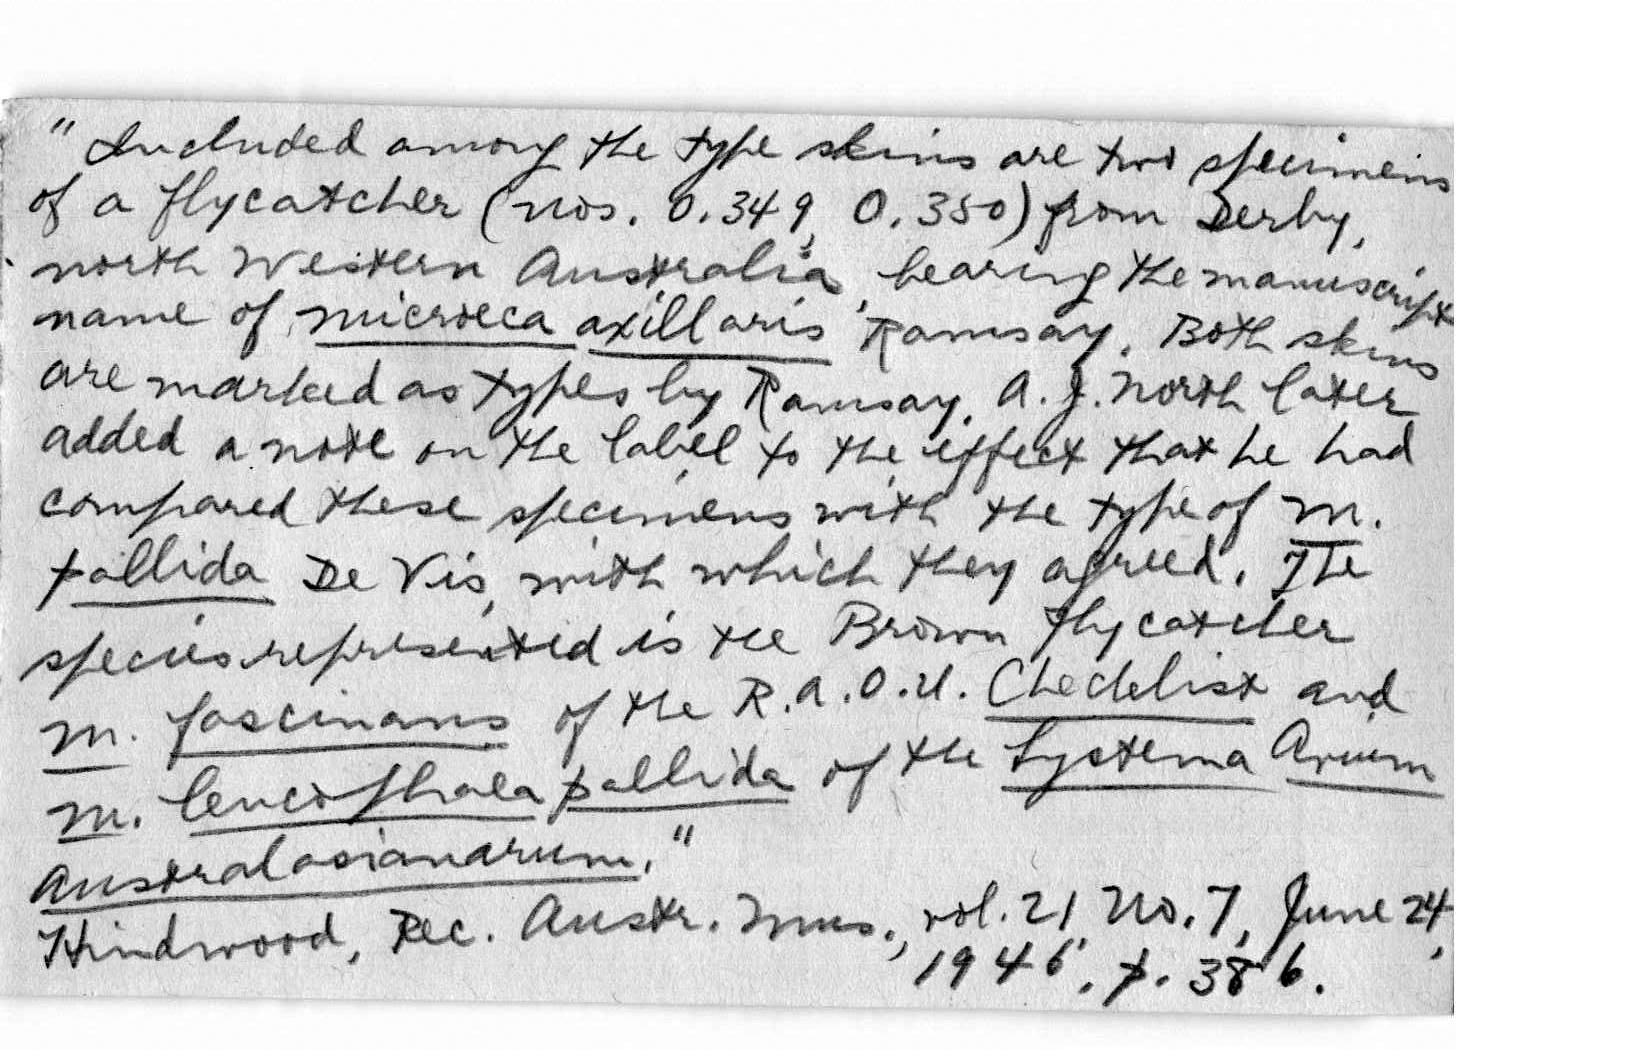 "Included among the type skins are two specimens
of a flycatcher (nos. O.349, O.350) from Derby,
north Western Australia, bearing the manuscript
name of Microeca axillaris Ramsay. Both skins
are marked as types by Ramsay. A. J. North later
added a note on the label to the effect that he had
compared these specimens with the type of M.
pallida De Vis, with which they agreed. The
species represented is the Brown Flycatcher
M. fascinans of the R.A.O.U. Checklist and
M. leucophaea pallida of the Systema Avium
Australasianarum."
Hindwood, Rec. Austr. Mus., vol. 21, No. 7, June 24,
1946, p. 386.